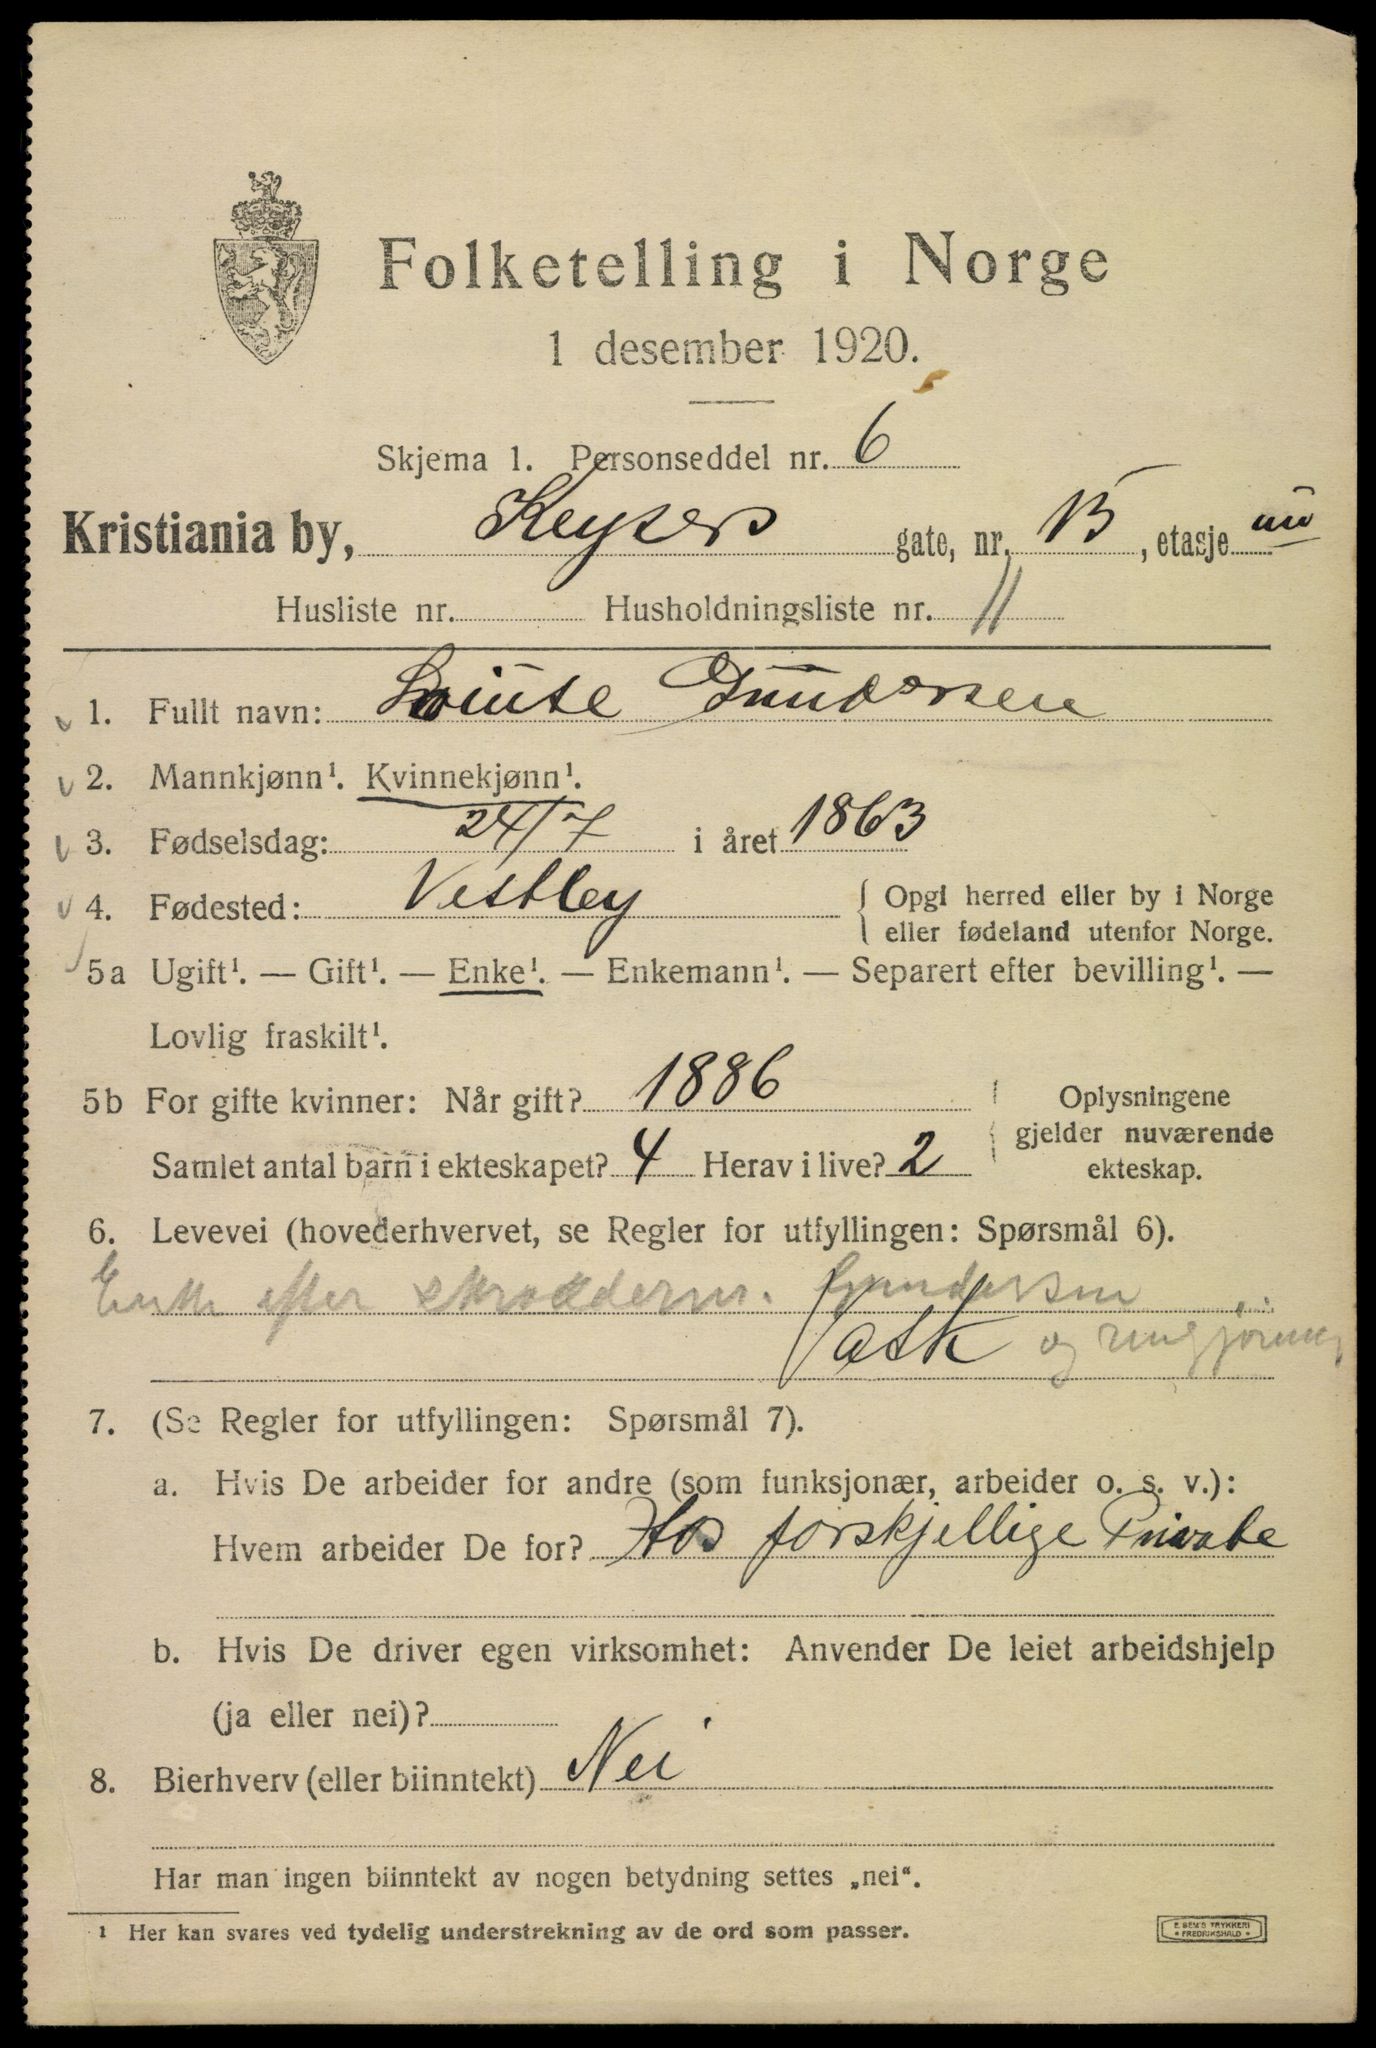 Folketelling i Norge
1 desember 1920.
Skjema 1. Personseddel nr. 6
Kristiania by, Keysers gate, nr. 13, etasje
Husliste nr. Husholdningsliste nr. 11
1. Fullt navn: Louise Gundersen
2. Mannkjønn¹. Kvinnekjønn¹.
3. Fødselsdag: 24/7 i året 1863
4. Fødested: Vestby { Opgi herred eller by i Norge
eller fødeland utenfor Norge.
5a Ugift¹. — Gift¹. — Enke¹. — Enkemann¹. — Separert efter bevilling¹. —
Lovlig fraskilt¹.
5b For gifte kvinner: Når gift? 1886
Samlet antal barn i ekteskapet? 4 Herav i live? 2
Oplysningene
gjelder nuværende
ekteskap.
6. Levevei (hovederhvervet, se Regler for utfyllingen: Spørsmål 6).
Enke efter skrædderm. Gundersen
Vask og rengjøring
7. (Se Regler for utfyllingen: Spørsmål 7).
a. Hvis De arbeider for andre (som funksjonær, arbeider o. s. v.):
Hvem arbeider De for? Hos forskjellige Private
b. Hvis De driver egen virksomhet: Anvender De leiet arbeidshjelp
(ja eller nei)?
8. Bierhverv (eller biinntekt) Nei
Har man ingen biinntekt av nogen betydning settes „nei“.
¹ Her kan svares ved tydelig understrekning av de ord som passer.
E. SEM'S TRYKKERI
* FREDRIKSHALD *